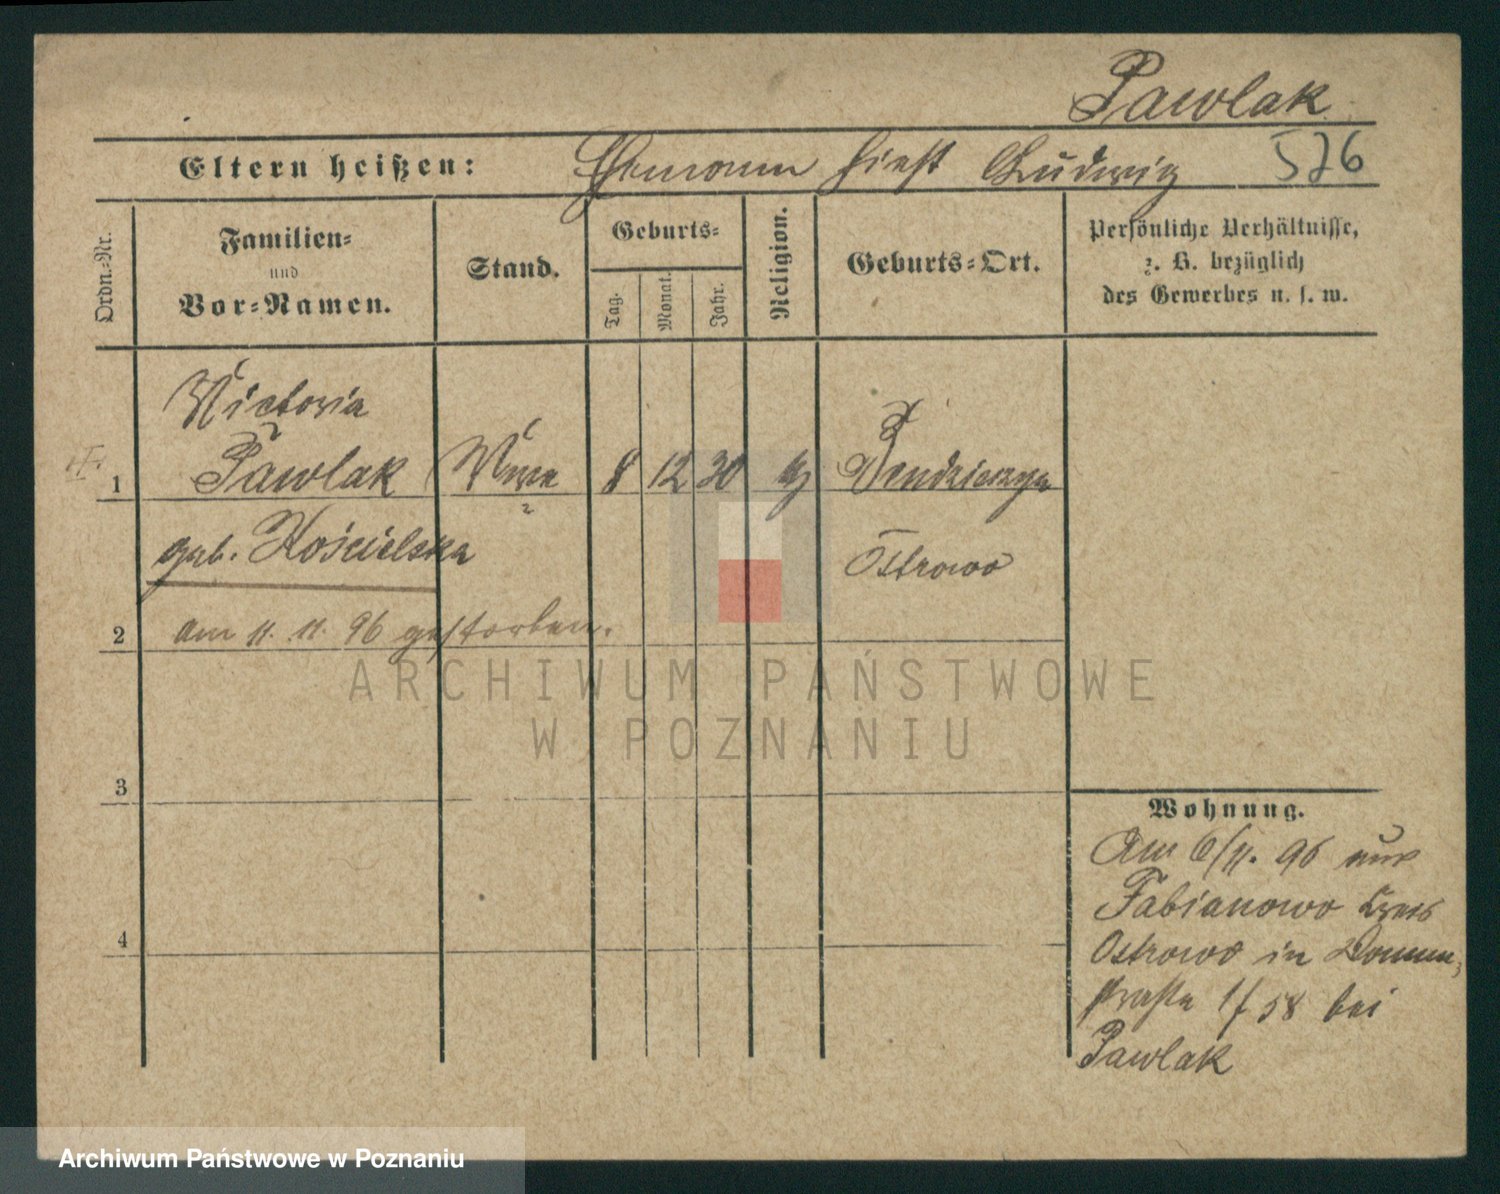 Pawlak
Eltern heißen: Ehemann hieß Ludwig 576
Ordn.-Nr.
Familien-
und
Vor-Namen.
Stand.
Geburts-
Tag.
Monat.
Jahr.
Religion.
Geburts-Ort.
Persönliche Verhältnisse,
z. B. bezüglich
des Gewerbes u. s. w.
Victoria
1 Pawlak Wwe 8 12 30
geb. Kościelska Ostrowo
2 am 11. 11. 96 gestorben.
3
4
Wohnung.
Am 6/11. 96 aus
Fabianowo Kreis
Ostrowo in
straße 1/58 bei
Pawlak
ARCHIWUM PAŃSTWOWE
W POZNANIU
Archiwum Państwowe w Poznaniu